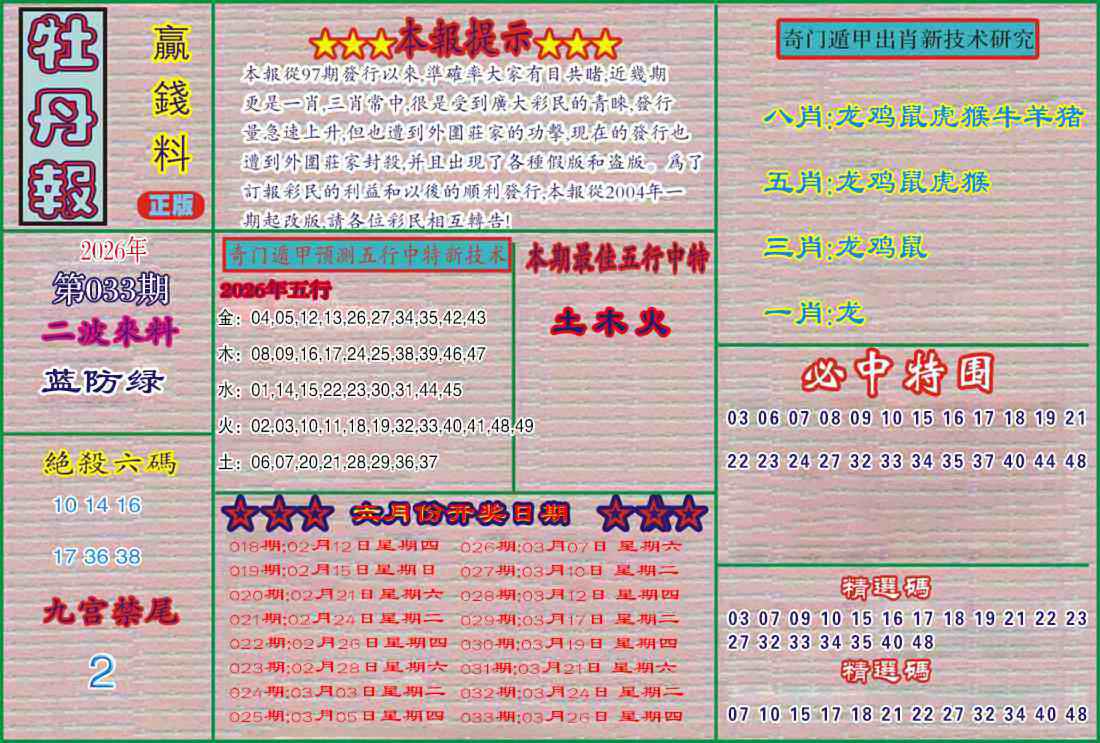 牡丹報
贏錢料
正版
★★★本報提示★★★
本報從97期發行以來,準確率大家有目共睹,近幾期
更是一肖,三肖常中,很是受到廣大彩民的青睞,發行
量急速上升,但也遭到外圍莊家的功擊,現在的發行也
遭到外圍莊家封殺,并且出現了各種假版和盗版。爲了
訂報彩民的利益和以後的順利發行,本報從2004年一
期起改版,請各位彩民相互轉告!
2026年
第033期
二波來料
蓝防绿
絕殺六碼
10 14 16
17 36 38
九宫禁尾
2
奇门遁甲预测五行中特新技术
2026年五行
金：04,05,12,13,26,27,34,35,42,43
木：08,09,16,17,24,25,38,39,46,47
水：01,14,15,22,23,30,31,44,45
火：02,03,10,11,18,19,32,33,40,41,48,49
土：06,07,20,21,28,29,36,37
本期最佳五行中特
土木火
☆☆☆ 六月份开奖日期 ☆☆☆
018期:02月12日星期四 026期:03月07日 星期六
019期:02月15日星期日 027期:03月10日 星期二
020期:02月21日星期六 028期:03月12日 星期四
021期:02月24日星期二 029期:03月17日 星期二
022期:02月26日星期四 030期:03月19日 星期四
023期:02月28日星期六 031期:03月21日 星期六
024期:03月03日星期二 032期:03月24日 星期二
025期:03月05日星期四 033期:03月26日 星期四
奇门遁甲出肖新技术研究
八肖:龙鸡鼠虎猴牛羊猪
五肖:龙鸡鼠虎猴
三肖:龙鸡鼠
一肖:龙
必中特围
03 06 07 08 09 10 15 16 17 18 19 21
22 23 24 27 32 33 34 35 37 40 44 48
精選碼
03 07 09 10 15 16 17 18 19 21 22 23
27 32 33 34 35 40 48
精選碼
07 10 15 17 18 21 22 27 32 34 40 48